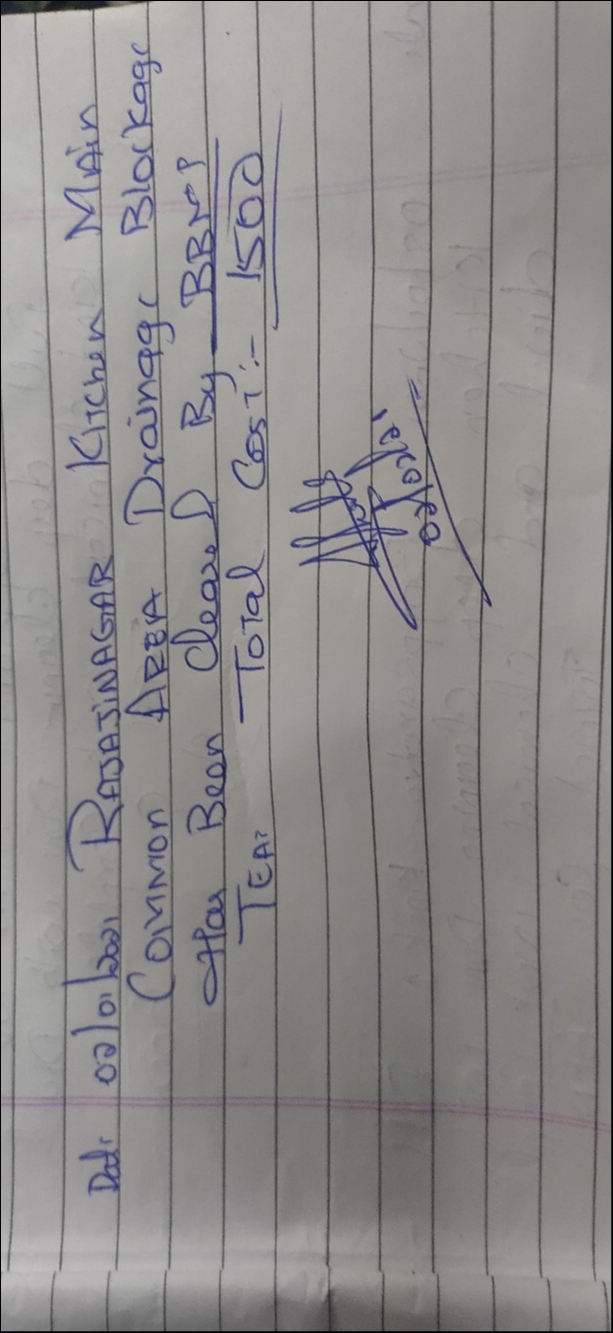 Date 02/01/2021 RAJAJINAGAR KITCHEN MAIN
COMMON AREA Drainage Blockage
Has Been Cleared By BBMP
TEAM TOTAL COST :- 1500
02/01/21